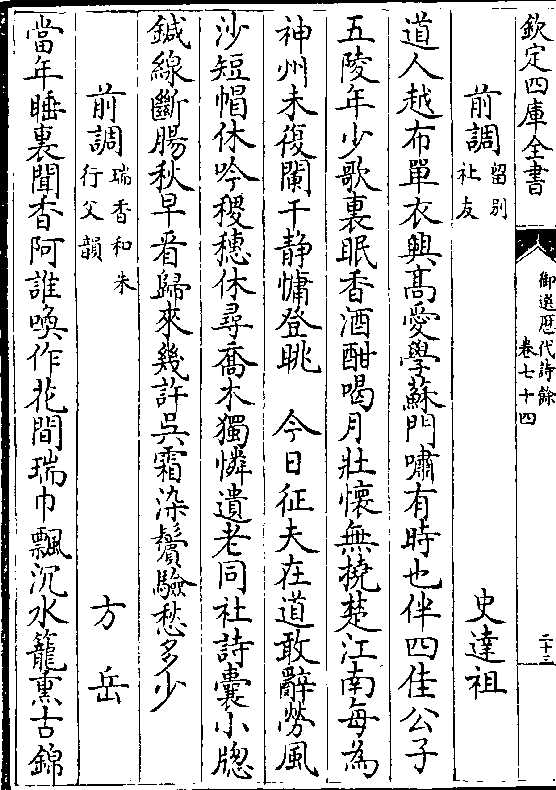 欽定四庫全書
御選歷代詩餘
卷七十四
二十三
前調 留别社友 史達祖
道人越布單衣興髙愛學蘇門嘯有時也伴四佳公子
五陵年少歌裏眠香酒酣喝月壯懷無撓楚江南每為
神州未復闌干静慵登眺 今日征夫在道敢辭勞風
沙短帽休吟稷穗休尋喬木獨憐遺老同社詩囊小牕
鍼線斷腸秋早看歸來幾許吳霜染鬢驗愁多少
前調 瑞香和朱行父韻 方岳
當年睡裏聞香阿誰喚作花間瑞巾飄沉水籠熏古錦